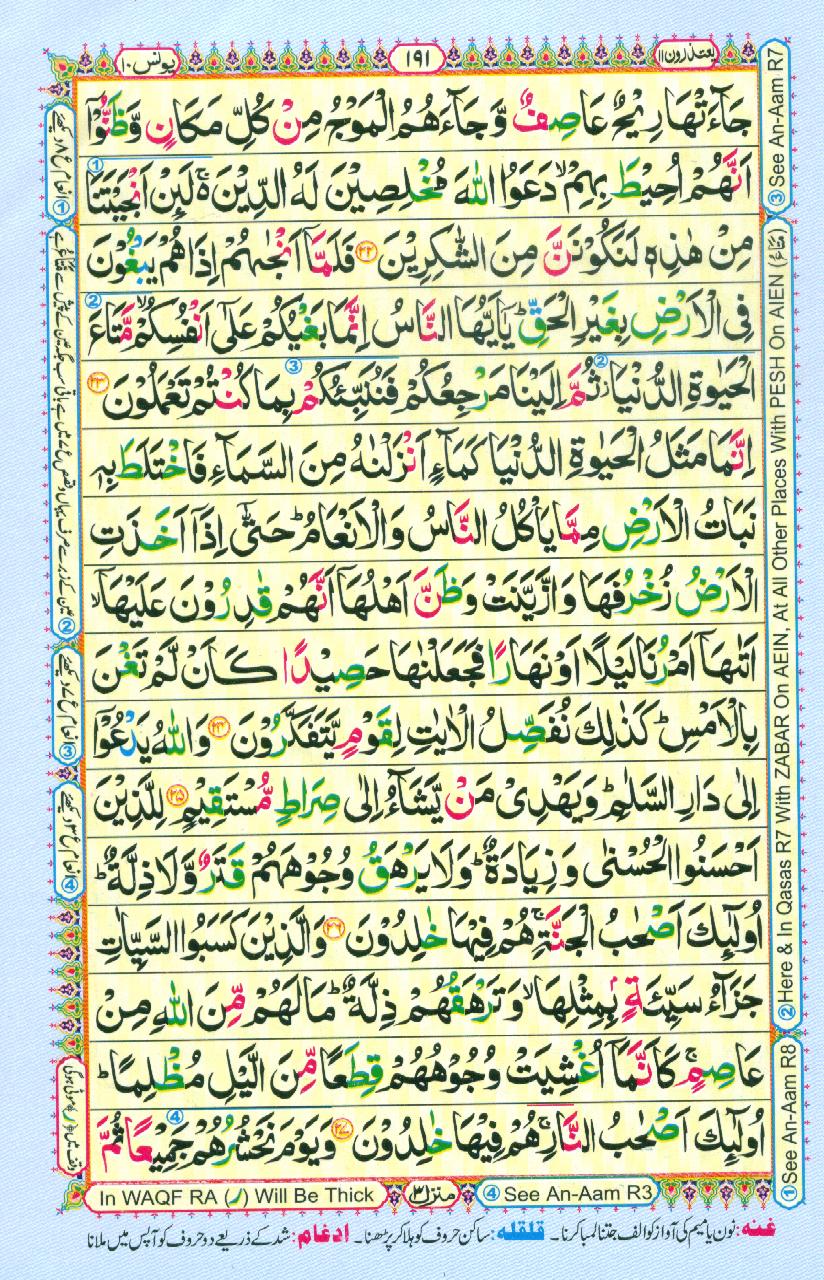 یونس ۱۰
۱۹۱
یعتذرون ۱۱
جَآءَتْهَا رِیْحٌ عَاصِفٌ وَّ جَآءَهُمُ الْمَوْجُ مِنْ كُلِّ مَكَانٍ وَّ ظَنُّوْۤا
اَنَّهُمْ اُحِیْطَ بِهِمْ ۙ دَعَوُا اللّٰهَ مُخْلِصِیْنَ لَهُ الدِّیْنَ ۚ۬ لَىِٕنْ اَنْجَیْتَنَا
مِنْ هٰذِهٖ لَنَكُوْنَنَّ مِنَ الشّٰكِرِیْنَ ۲۲ فَلَمَّاۤ اَنْجٰىهُمْ اِذَا هُمْ یَبْغُوْنَ
فِی الْاَرْضِ بِغَیْرِ الْحَقِّ ؕ یٰۤاَیُّهَا النَّاسُ اِنَّمَا بَغْیُكُمْ عَلٰۤى اَنْفُسِكُمْ ۙ مَّتَاعَ
الْحَیٰوةِ الدُّنْیَا ؗ ثُمَّ اِلَیْنَا مَرْجِعُكُمْ فَنُنَبِّئُكُمْ بِمَا كُنْتُمْ تَعْمَلُوْنَ ۲۳
اِنَّمَا مَثَلُ الْحَیٰوةِ الدُّنْیَا كَمَآءٍ اَنْزَلْنٰهُ مِنَ السَّمَآءِ فَاخْتَلَطَ بِهٖ
نَبَاتُ الْاَرْضِ مِمَّا یَاْكُلُ النَّاسُ وَ الْاَنْعَامُ ؕ حَتّٰۤى اِذَاۤ اَخَذَتِ
الْاَرْضُ زُخْرُفَهَا وَ ازَّیَّنَتْ وَ ظَنَّ اَهْلُهَاۤ اَنَّهُمْ قٰدِرُوْنَ عَلَیْهَاۤ ۙ
اَتٰىهَاۤ اَمْرُنَا لَیْلًا اَوْ نَهَارًا فَجَعَلْنٰهَا حَصِیْدًا كَاَنْ لَّمْ تَغْنَ
بِالْاَمْسِ ؕ كَذٰلِكَ نُفَصِّلُ الْاٰیٰتِ لِقَوْمٍ یَّتَفَكَّرُوْنَ ۲۴ وَ اللّٰهُ یَدْعُوْۤا
اِلٰى دَارِ السَّلٰمِ ؕ وَ یَهْدِیْ مَنْ یَّشَآءُ اِلٰى صِرَاطٍ مُّسْتَقِیْمٍ ۲۵ لِلَّذِیْنَ
اَحْسَنُوا الْحُسْنٰى وَ زِیَادَةٌ ؕ وَ لَا یَرْهَقُ وُجُوْهَهُمْ قَتَرٌ وَّ لَا ذِلَّةٌ ؕ
اُولٰٓىِٕكَ اَصْحٰبُ الْجَنَّةِ ۚ هُمْ فِیْهَا خٰلِدُوْنَ ۲۶ وَ الَّذِیْنَ كَسَبُوا السَّیِّاٰتِ
جَزَآءُ سَیِّئَةٍۭ بِمِثْلِهَا ۙ وَ تَرْهَقُهُمْ ذِلَّةٌ ؕ مَا لَهُمْ مِّنَ اللّٰهِ مِنْ
عَاصِمٍ ۚ كَاَنَّمَاۤ اُغْشِیَتْ وُجُوْهُهُمْ قِطَعًا مِّنَ الَّیْلِ مُظْلِمًا ؕ
اُولٰٓىِٕكَ اَصْحٰبُ النَّارِ ۚ هُمْ فِیْهَا خٰلِدُوْنَ ۲۷ وَ یَوْمَ نَحْشُرُهُمْ جَمِیْعًا ثُمَّ
③ See An-Aam R7
② Here & In Qasas R7 With ZABAR On AEIN, At All Other Places With PESH On AIEN (مَتَاعُ)
① See An-Aam R8
④ See An-Aam R3
منزل ۳
In WAQF RA (ر) Will Be Thick
① انعام ع ۸ دیکھئے
③ انعام ع ۷ دیکھئے
④ انعام ع ۳ دیکھئے
غنہ: نون یا میم کی آواز کو الف جتنا لمبا کرنا۔ قلقلہ: ساکن حروف کو ہلا کر پڑھنا۔ ادغام: شد کے ذریعے دو حروف کو آپس میں ملانا